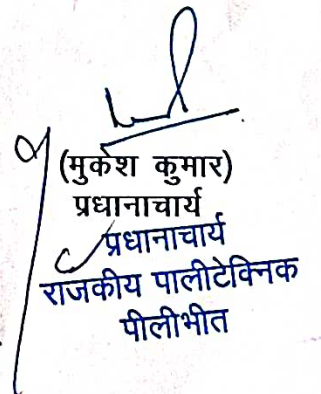 (मुकेश कुमार)
प्रधानाचार्य
प्रधानाचार्य
राजकीय पालीटेक्निक
पीलीभीत